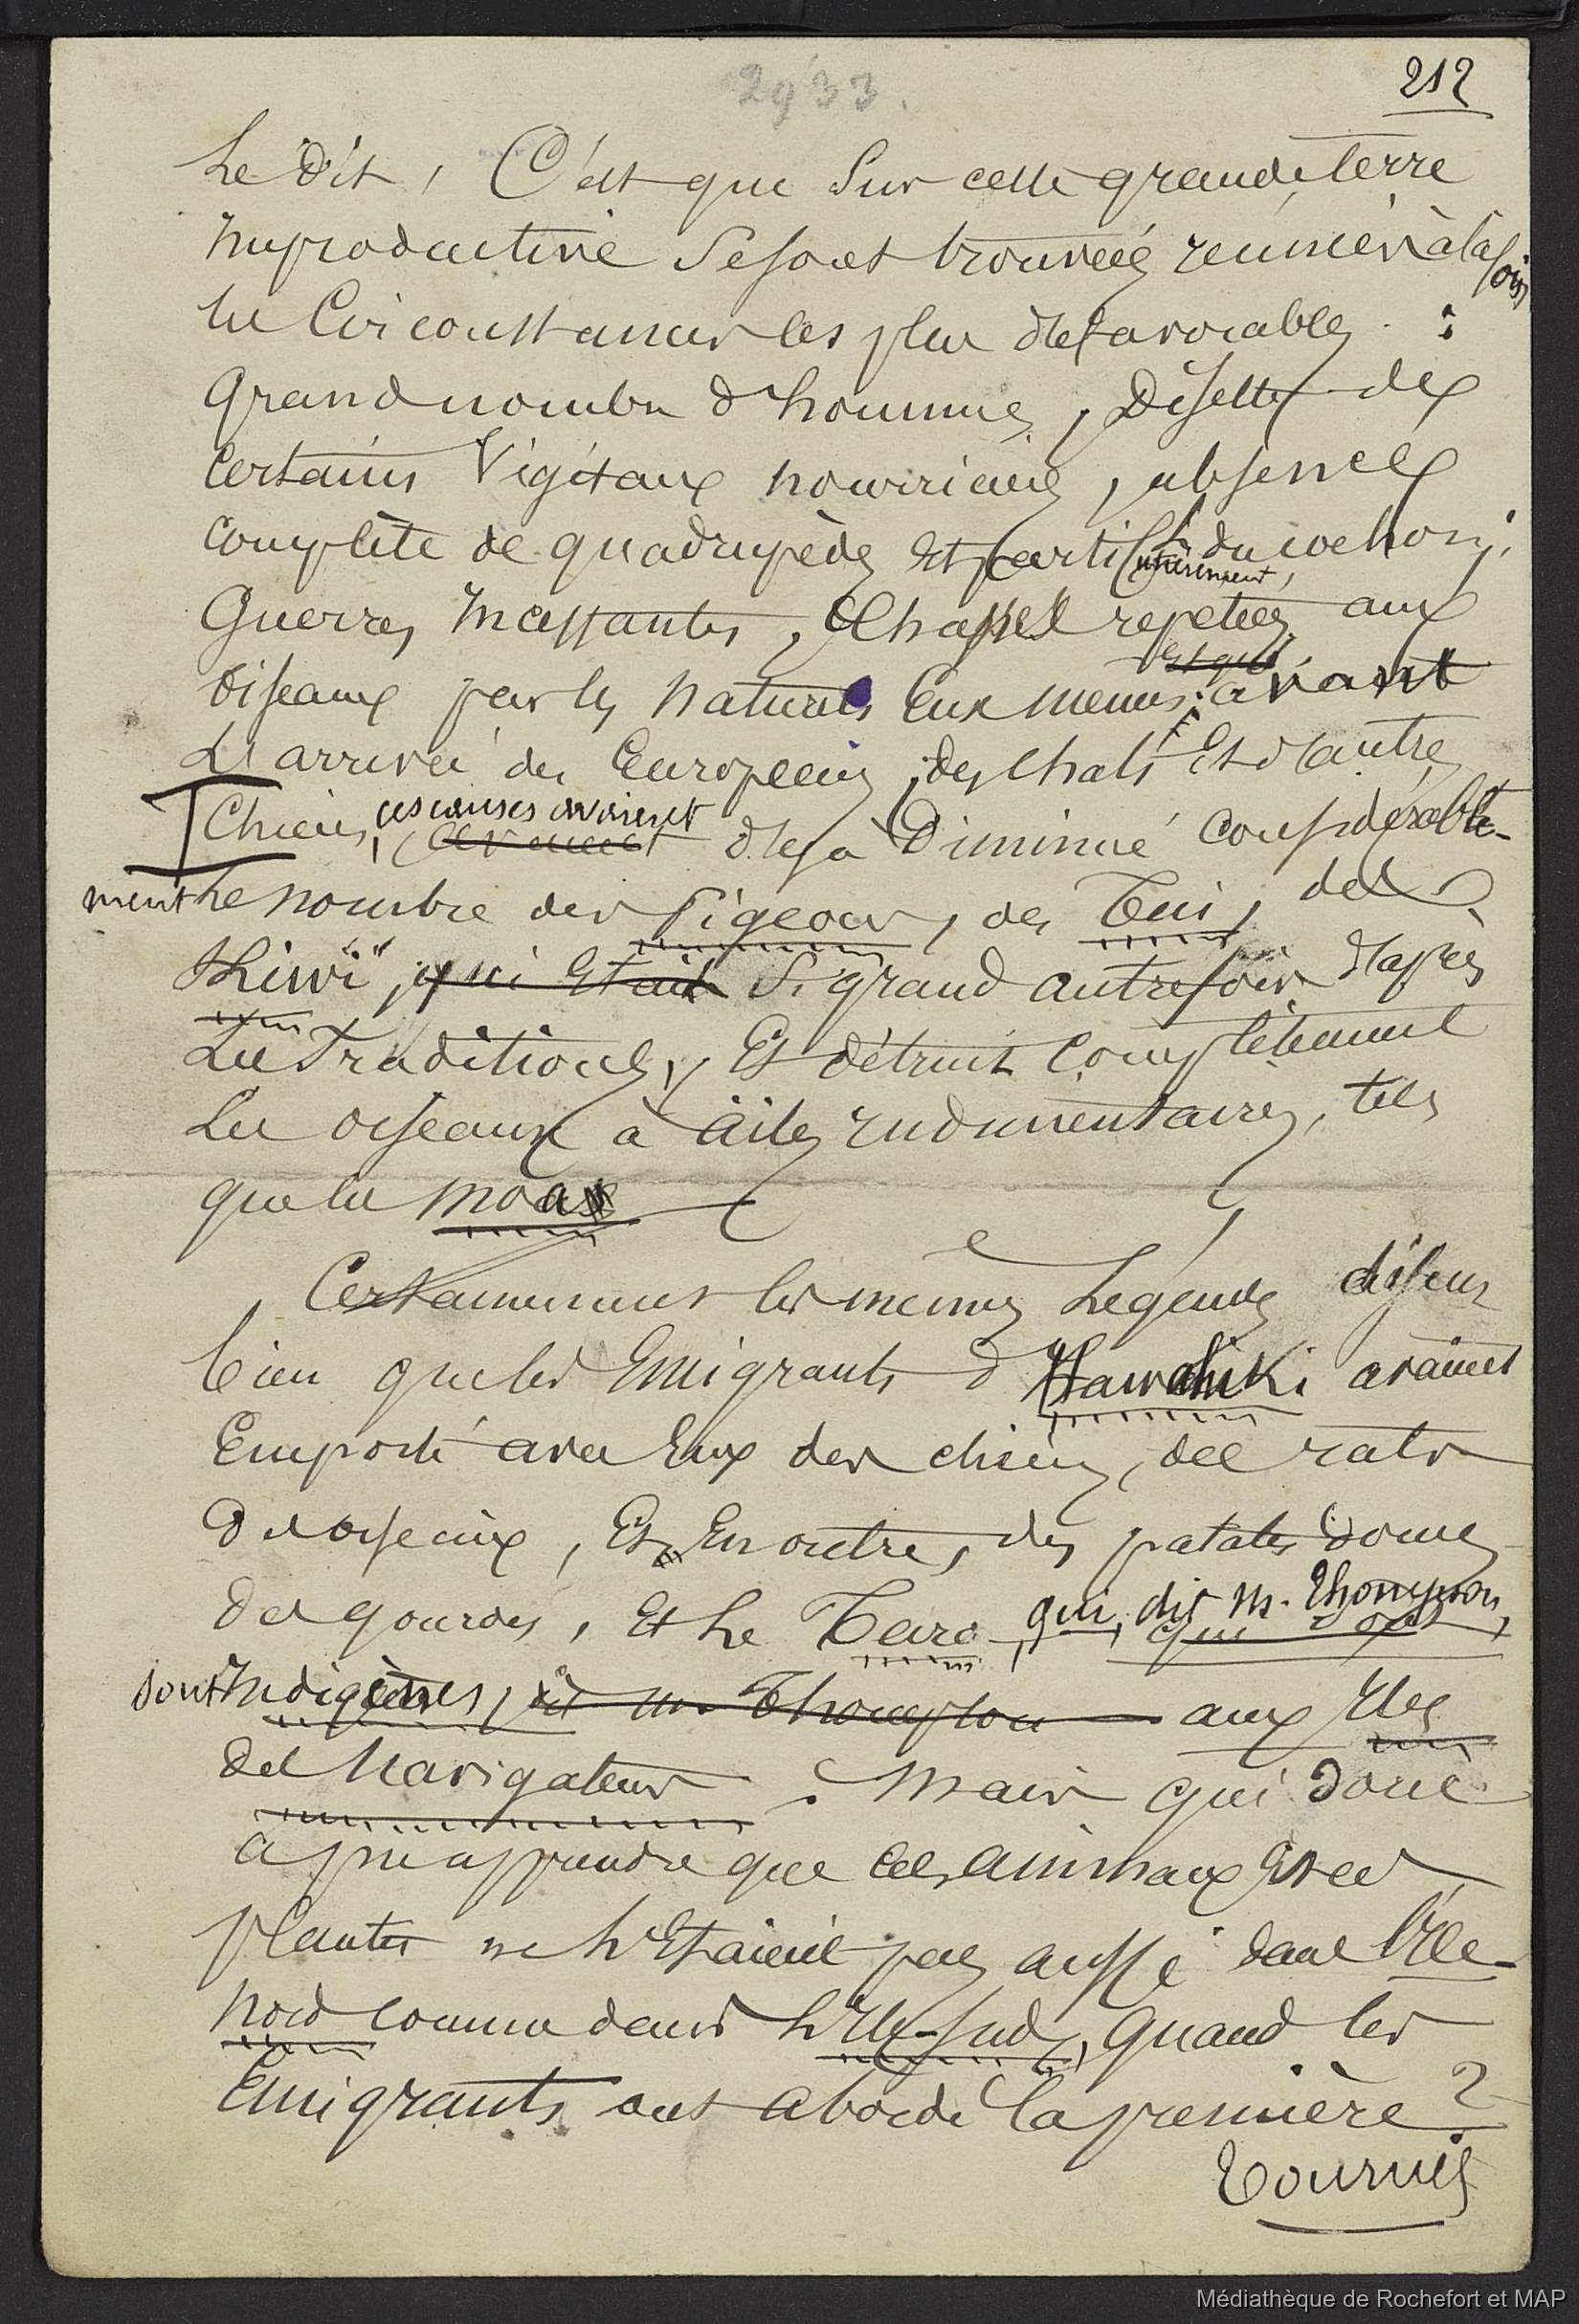 2933.
212
le dit, C'est que sur cette grande terre
improductive se sont trouvées réunies à la fois
les Circonstances les plus défavorables :
Grand nombre d'hommes, Disette de
certains Végétaux nourriciers, absence
complète de quadrupèdes Et du cochon;
Guerres Incessantes, Chasses repetées aux
oiseaux par les naturels Eux memes: avant
L'arrivée des Européens, des chats Et d'autres
Chiens, ces causes avaient déjà Diminué considérable-
ment le nombre des Pigeons, des Tui, des
"Kiwi", qui était si grand autrefois d'après
Les Traditions, Et détruit complètement
Les oiseaux à ailes rudimentaires, tels
que les moas
Certainement les mêmes Légendes disent
bien que les Emigrants d'Hawahiki avaient
Emporté avec Eux des chiens, des rats
des oiseaux, Et, En outre, des patates douces
des gourdes, Et le Taro qui, dit M. Thompson,
sont Indigènes, dit M. Thompson aux Iles
des Navigateurs. Mais qui donc
a pu apprendre que ces animaux Et ces
plantes ne n'Etaient pas aussi dans l'Ile-
nord comme dans l'Ile-sud, quand les
Emigrants ont abordé la première?
Tournez
Médiathèque de Rochefort et MAP